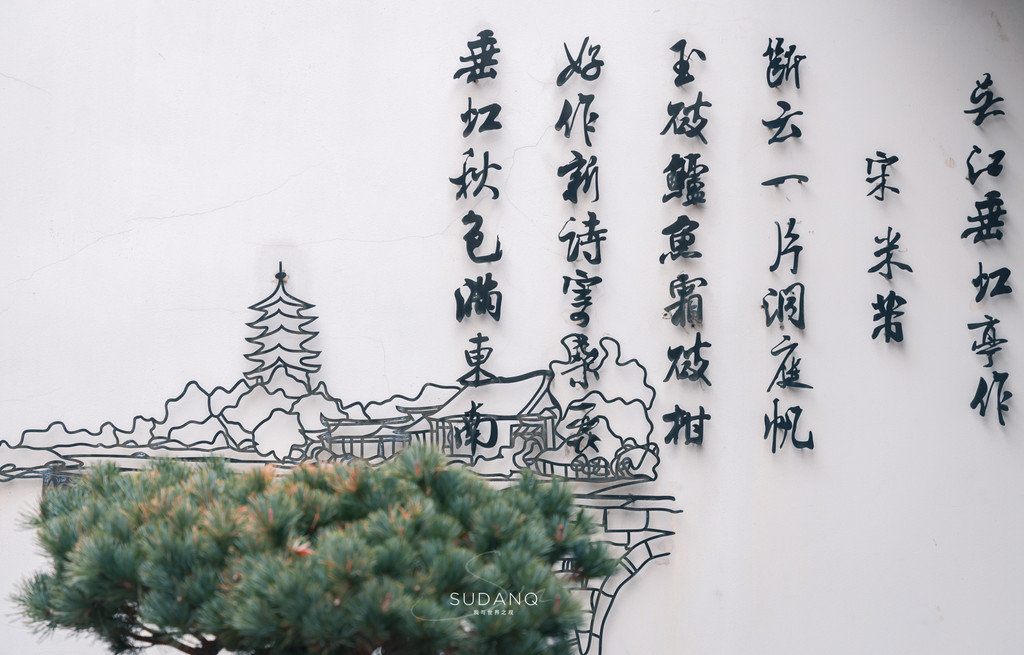 吴江垂虹亭作
宋 米芾
断云一片洞庭帆
玉破鱸魚霜破柑
好作新诗寄桑
垂虹秋色满東南
SUDANQ